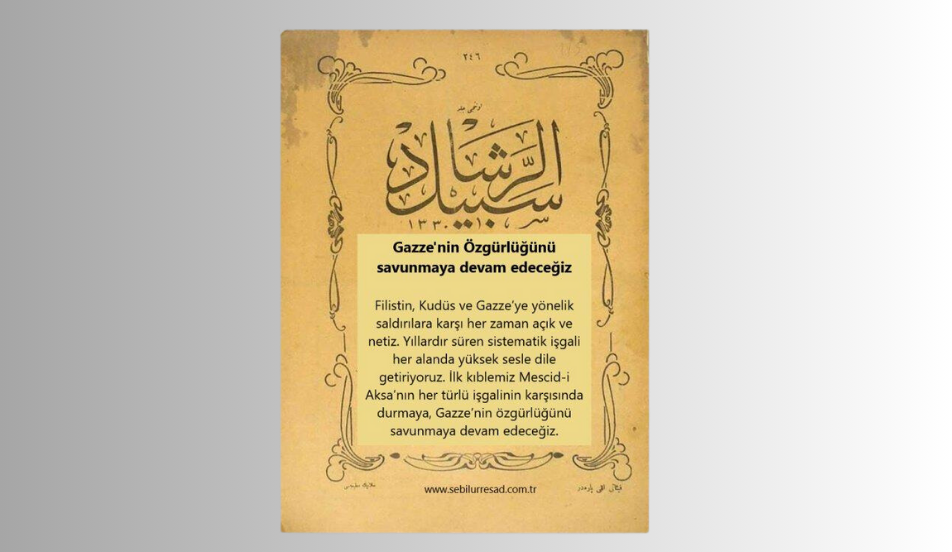 ٢٤٦
سبيل الرشاد
١٣٣٠
Gazze'nin Özgürlüğünü
savunmaya devam edeceğiz
Filistin, Kudüs ve Gazze’ye yönelik
saldırılara karşı her zaman açık ve
netiz. Yıllardır süren sistematik işgali
her alanda yüksek sesle dile
getiriyoruz. İlk kıblemiz Mescid-i
Aksa’nın her türlü işgalinin karşısında
durmaya, Gazze’nin özgürlüğünü
savunmaya devam edeceğiz.
www.sebilurresad.com.tr